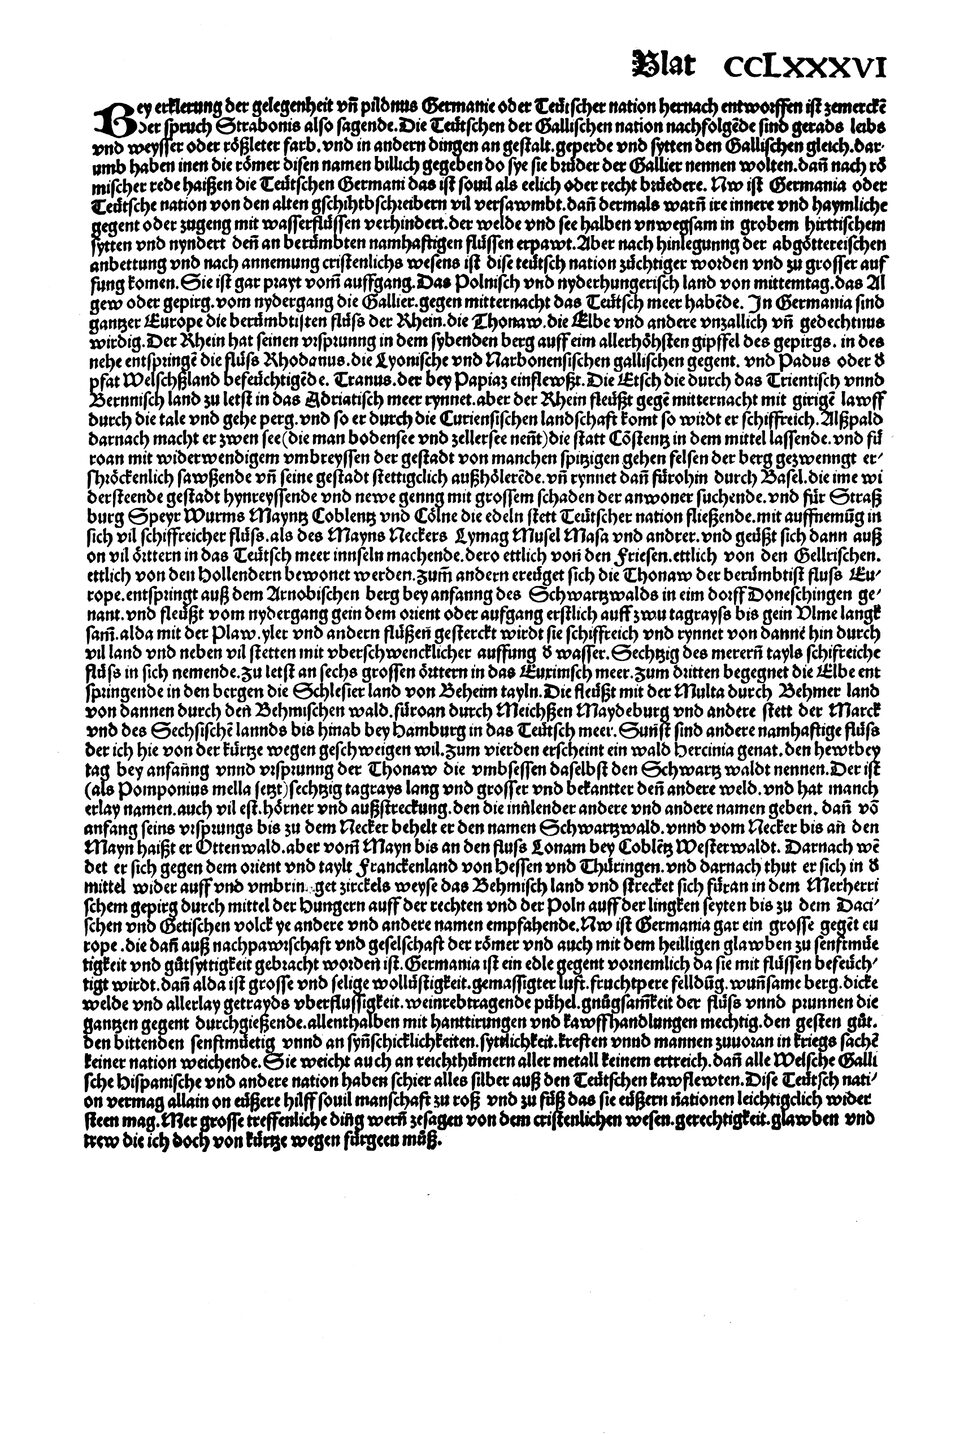 Blat CCLXXXVI
Bey erklerung der gelegenheit vñ pildnus Germanie oder Teütscher nation hernach entworffen ist zemerckē
der spruch Strabonis also sagende.Die Teütschen der Gallischen nation nachfolgēde sind gerads leibs
vnd weysser oder rößleter farb.vnd in andern dingen an gestalt.geperde vnd sytten den Gallischen gleich.dar-
umb haben inen die römer disen namen billich gegeben do sye sie brüder der Gallier nennen wolten.dañ nach rö
mischer rede haißen die Teütschen Germani das ist souil als eelich oder recht brüedere. Nw ist Germania oder
Teütsche nation von den alten gschihtbschreibern vil versawmbt.dañ dermals warñ ire innere vnd haymliche
gegent oder zugeng mit wasserflüssen verhindert.der welde vnd see halben vnwegsam in grobem hirttischem
sytten vnd nyndert deñ an berümbten namhaftigen flüssen erpawt.Aber nach hinlegunng der abgöttereischen
anbettung vnd nach annemung cristenlichs wesens ist dise teütsch nation züchtiger worden vnd zu grosser auf
fung komen.Sie ist gar prayt vom̄ auffgang.Das Polnisch vnd nyderhungerisch land von mittemtag.das Al
gew oder gepirg.vom nydergang die Gallier.gegen mitternacht das Teütsch meer habēde. In Germania sind
gantzer Europe die berümbtisten flüss der Rhein.die Thonaw.die Elbe vnd andere vnzallich vñ gedechtnus
wirdig.Der Rhein hat seinen vrsprunng in dem sybenden berg auff eim allerhöhsten gipffel des gepirgs. in des
nehe entspringē die flüss Rhodanus.die Lyonische vnd Narbonensischen gallischen gegent. vnd Padus oder d̄
pfat Welschßland befeüchtigēde. Tranus.der bey Papiaz einflewßt.Die Etsch die durch das Trientisch vnnd
Bernnisch land zu letst in das Adriatisch meer rynnet.aber der Rhein fleüßt gegē mitternacht mit girigē lawff
durch die tale vnd gehe perg.vnd so er durch die Curiensischen landschaft komt so wirdt er schiffreich.Alßpald
darnach macht er zwen see(die man bodensee vnd zellersee neñt)die statt Cöstentz in dem mittel lassende.vnd für
roan mit widerwendigem vmbreyssen der gestadt von manchen spitzigen gehen felsen der berg gezwenngt er-
schröckenlich sawßende vñ seine gestadt stettigclich außhölerēde.vñ rynnet dañ fürohin durch Basel.die ime wi
dersteende gestadt hynreyssende vnd newe genng mit grossem schaden der anwoner suchende.vnd für Straß
burg Speyr Wurms Mayntz Coblentz vnd Cölne die edeln stett Teütscher nation fließende.mit auffnemūg in
sich vil schiffreicher flüss.als des Mayns Neckers Lymag Musel Masa vnd andrer.vnd geüßt sich dann auß
on vil örttern in das Teütsch meer innseln machende.dero ettlich von den Friesen.ettlich von den Gellrischen.
ettlich von den Hollendern bewonet werden.Zum̄ andern ereüget sich die Thonaw der berümbtist fluss Eu-
rope.entspringt auß dem Arnobischen berg bey anfanng des Schwartzwalds in eim dorff Doneschingen ge-
nant.vnd fleüßt vom nydergang gein dem orient oder aufgang erstlich auff zwu tagrayss bis gein Vlme langk
sam̄.alda mit der Plaw.yler vnd andern flüßen gesterckt wirdt sie schiffreich vnd rynnet von danne hin durch
vil land vnd neben vil stetten mit vberschwencklicher auffung d̄ wasser.Sechtzig des merern̄ tayls schifreiche
flüss in sich nemende.zu letst an sechs grossen örttern in das Euximsch meer.Zum dritten begegnet die Elbe ent
springende in den bergen die Schlesier land von Beheim tayln.Die fleüßt mit der Multa durch Behmer land
von dannen durch den Behmischen wald.füroan durch Meichßen Maydeburg vnd andere stett der Marck
vnd des Sechsischē lannds bis hinab bey Hamburg in das Teütsch meer.Suñst sind andere namhaftige flüss
der ich hie von der kürtze wegen geschweigen wil.Zum vierden erscheint ein wald Hercinia genat.den hewtbey
tag bey anfanng vnnd vrsprunng der Thonaw die vmbsessen daselbst den Schwartz waldt nennen.Der ist
(als Pomponius mella setzt)sechtzig tagrays lang vnd grosser vnd bekantter deñ andere weld.vnd hat manch
erlay namen.auch vil est.hörner vnd außstreckung.den die iñlender andere vnd andere namen geben. dañ vō
anfang seins vrsprungs bis zu dem Necker behelt er den namen Schwartzwald.vnnd vom Necker bis an den
Mayn haißt er Ottenwald.aber vom̄ Mayn bis an den fluss Lonam bey Coblētz Westerwaldt. Darnach wē
det er sich gegen dem orient vnd taylt Franckenland von Hessen vnd Thüringen.vnd darnach thut er sich in d̄
mittel wider auff vnd vmbringet zirckels weyse das Behmisch land vnd strecket sich füran in dem Merherri
schem gepirg durch mittel der Hungern auff der rechten vnd der Poln auff der lingken seyten bis zu dem Daci-
schen vnd Getischen volck ye andere vnd andere namen empfahende.Nw ist Germania gar ein grosse gegēt eu
rope.die dañ auß nachpawrschaft vnd geselschaft der römer vnd auch mit dem heilligen glawben zu senftmüe
tigkeit vnd gütsyttigkeit gebracht worden ist.Germania ist ein edle gegent vornemlich da sie mit flüssen befeüch-
tigt wirdt.dañ alda ist grosse vnd selige wollüstigkeit.gemassigter luft.fruchtpere felldūg.wuñsame berg.dicke
welde vnd allerlay getrayds vberflussigkeit.weinrebtragende pühel.gnügsam̄keit der flüss vnnd prunnen die
gantzen gegent durchgießende.allenthalben mit hanttirungen vnd kawffhandlungen mechtig.den gesten güt.
den bittenden senftmüetig vnnd an syñschicklichkeiten.syttlichkeit.kreften vnnd mannen zuuoran in kriegs sachē
keiner nation weichende.Sie weicht auch an reichthümern aller metall keinem ertreich.dañ alle Welsche Galli
sche Hispanische vnd andere nation haben schier alles silber auß den Teütschen kawflewten.Dise Teütsch nati-
on vermag allain on eüßere hilff souil manschaft zu roß vnd zu füß das sie eüßern nationen leichtigclich wider
steen mag.Mer grosse treffenliche ding werñ zesagen von dem cristenlichen wesen.gerechtigkeit.glawben vnd
trew die ich doch von kürtze wegen fürgeen müß.